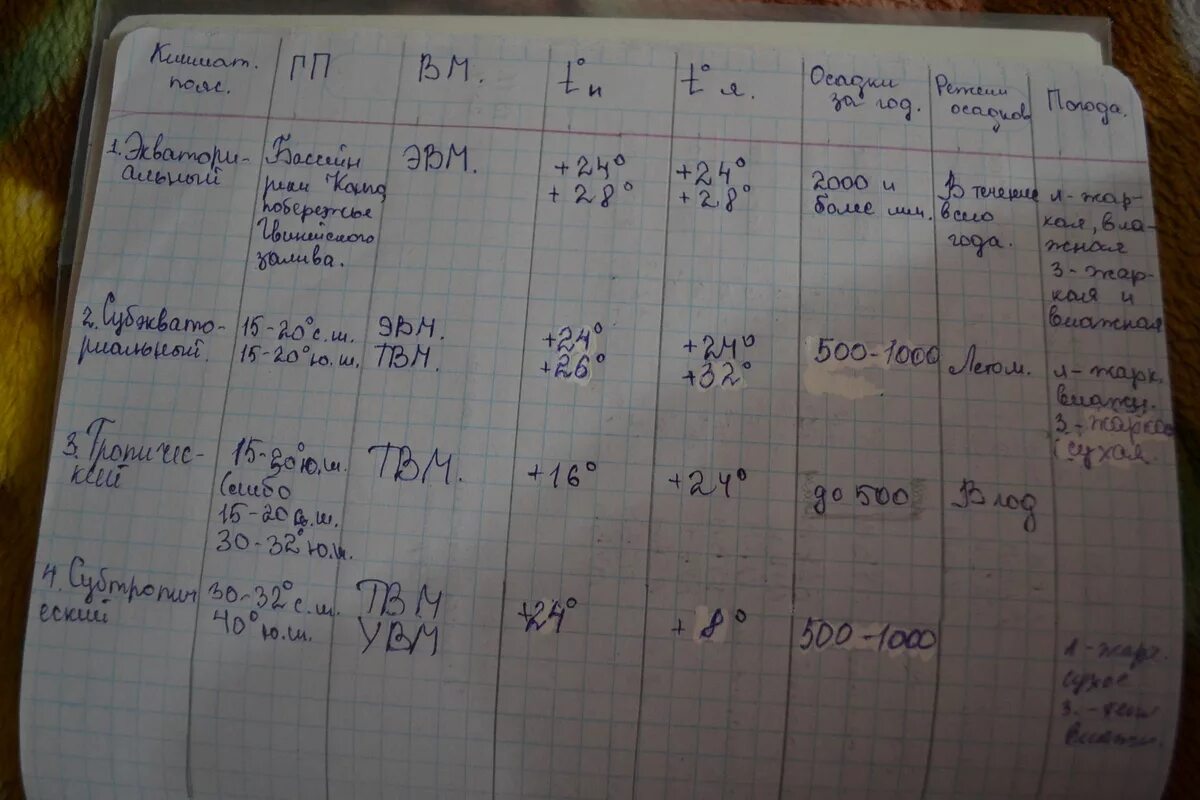 Климат. пояс.
ГП
ВМ.
t° и
t° я.
Осадки за год.
Режим осадков
Погода.
1. Экватори-
альный
Бассейн
реки Конго
побережье
Гвинейского
залива.
ЭВМ.
+24°
+28°
+24°
+28°
2000 и
более мм.
В течение
всего
года.
л - жар-
кая, вла-
жная
З - жар-
кая и
влажная
2. Субэквато-
риальный.
15-20° с.ш.
15-20° ю.ш.
ЭВМ.
ТВМ.
+24°
+26°
+24°
+32°
500-1000
Летом.
л - жарк.
влажн.
З. - жаркая
сухая.
3. Тропичес-
кий
15-20° ю.ш.
(либо
15-20 с.ш.
30-32° ю.ш.
ТВМ.
+16°
+24°
до 500
В год
4. Субтропич
еский
30-32° с.ш.
40° ю.ш.
ТВМ
УВМ
+24°
+8°
500-1000
л - жарк.
сухое
З. - теп
влажн.